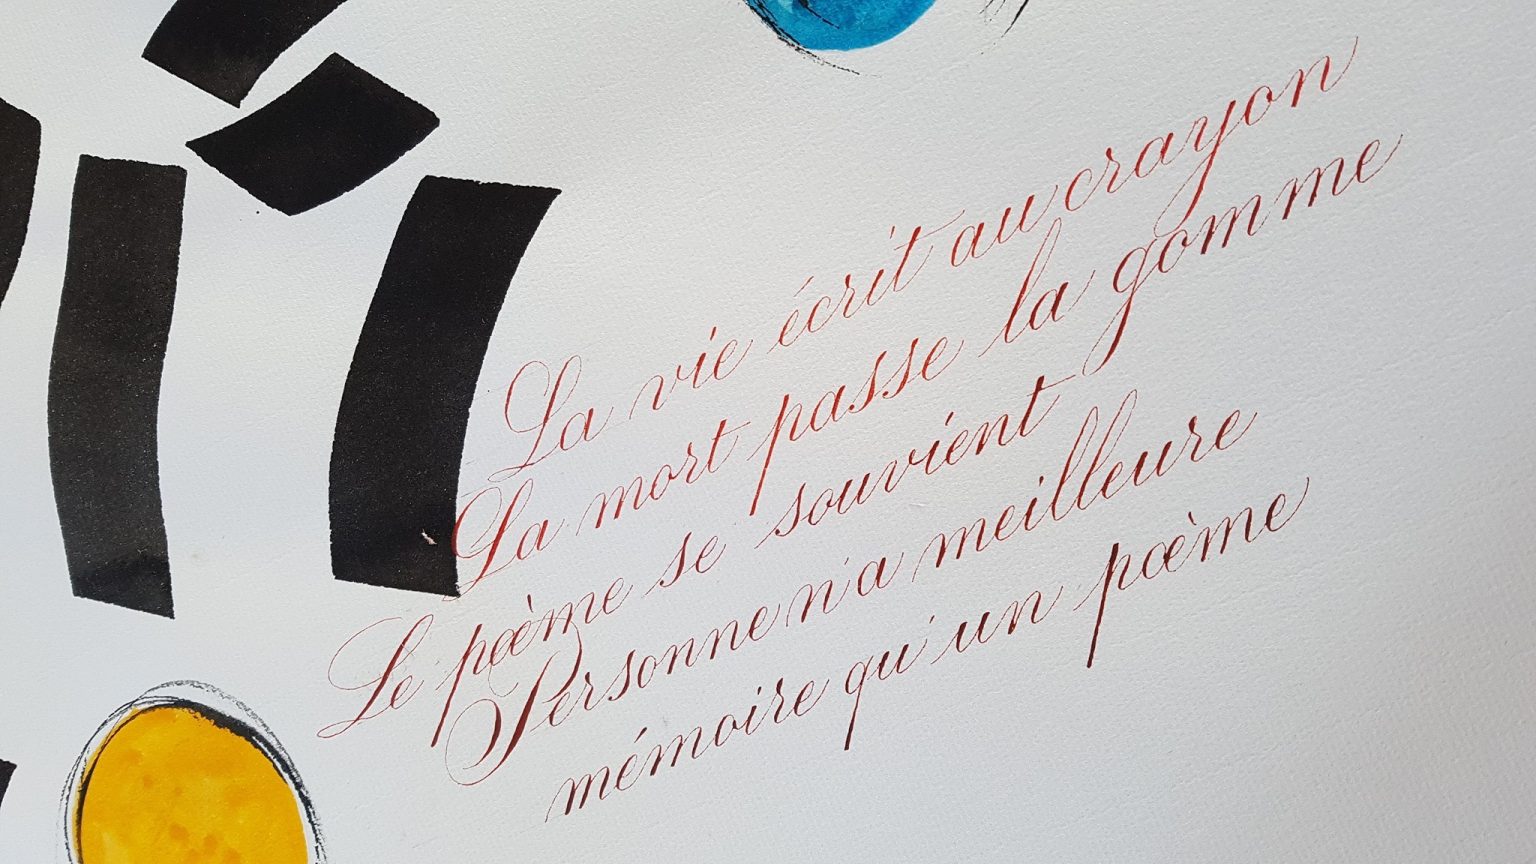 La vie écrit au crayon
La mort passe la gomme
Le poème se souvient
Personne n'a meilleure
mémoire qu'un poème